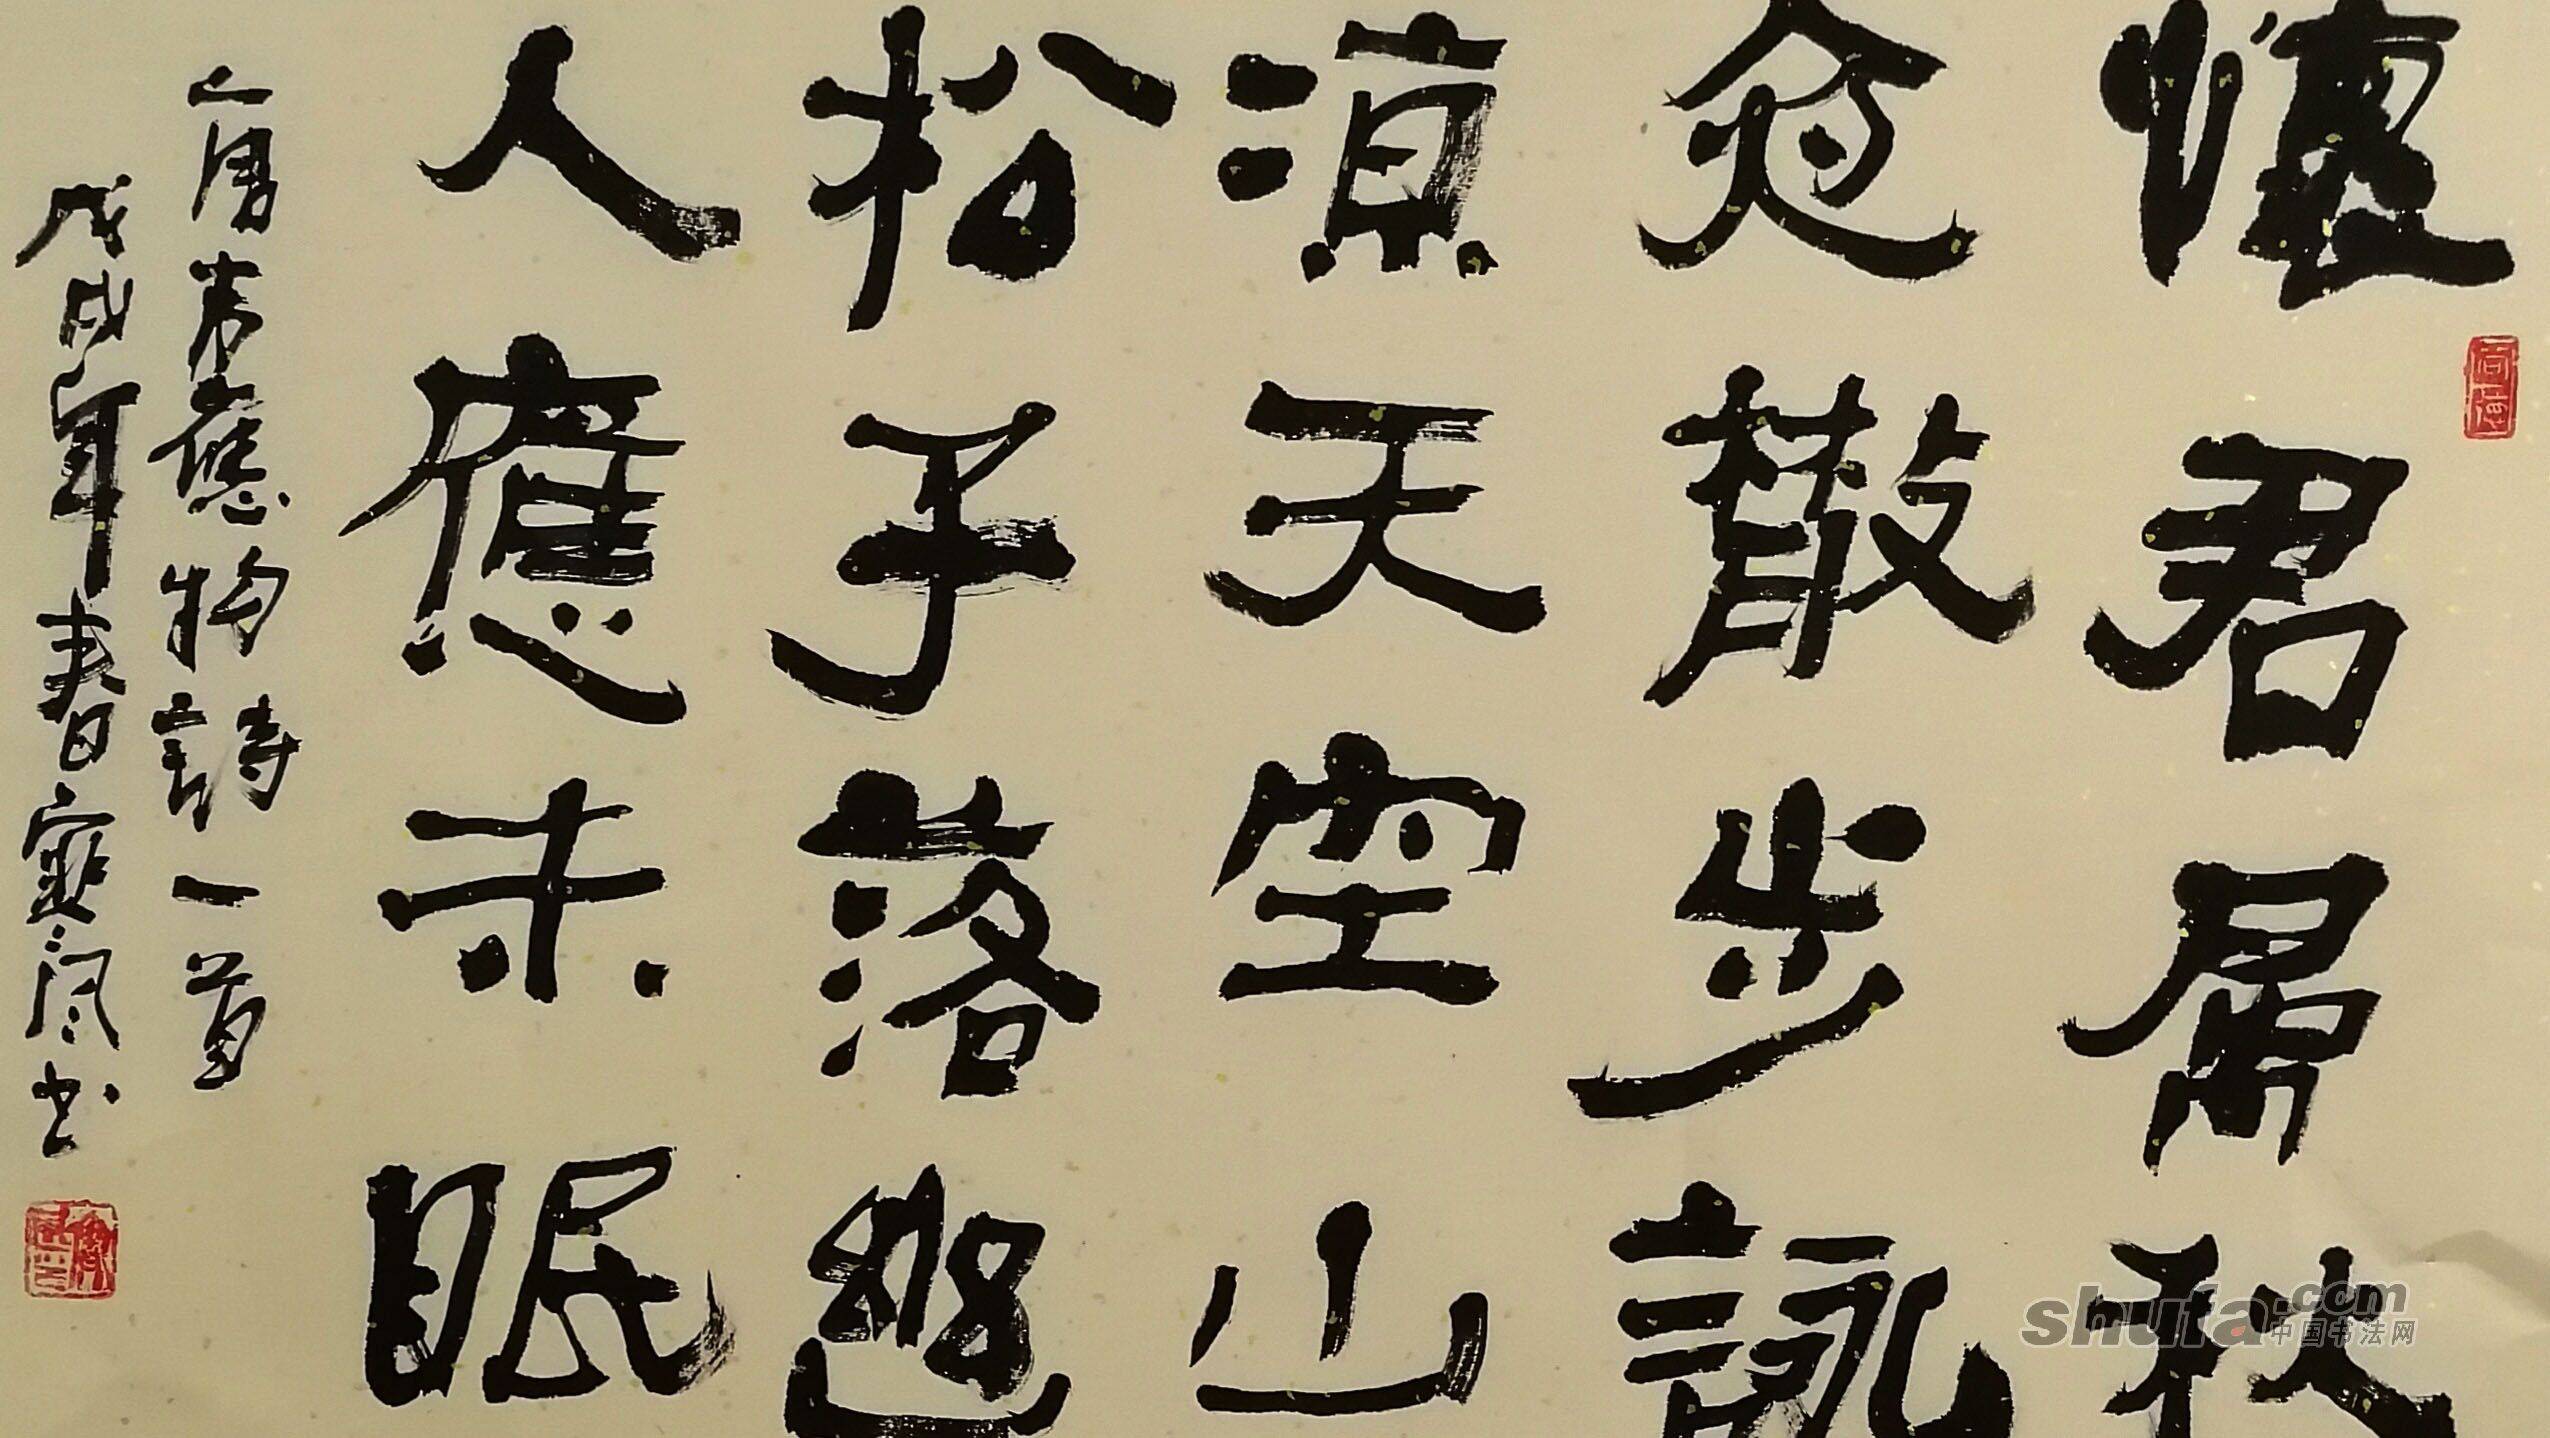 懷君屬秋
夜散步詠
涼天空山
松子落幽
人應未眠
唐韋應物詩一首
戊戌年春日书
shufa.com
中国书法网